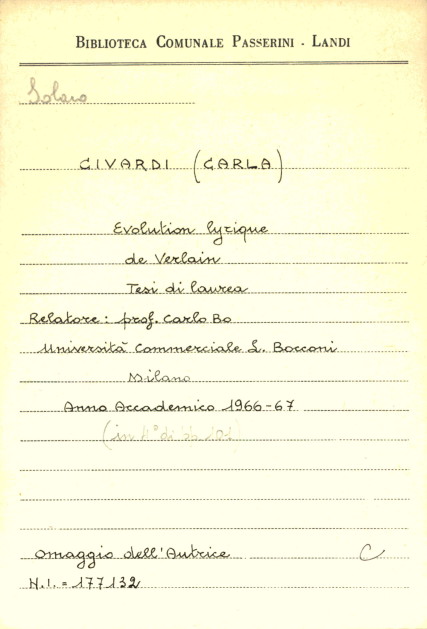 BIBLIOTECA COMUNALE PASSERINI - LANDI
Solaio
CIVARDI (CARLA)
Evolution lyrique
de Verlain
Tesi di laurea
Relatore: prof. Carlo Bo
Università Commerciale L. Bocconi
Milano
Anno Accademico 1966-67
(in 4° di
omaggio dell'Autrice C
N.I. = 177132